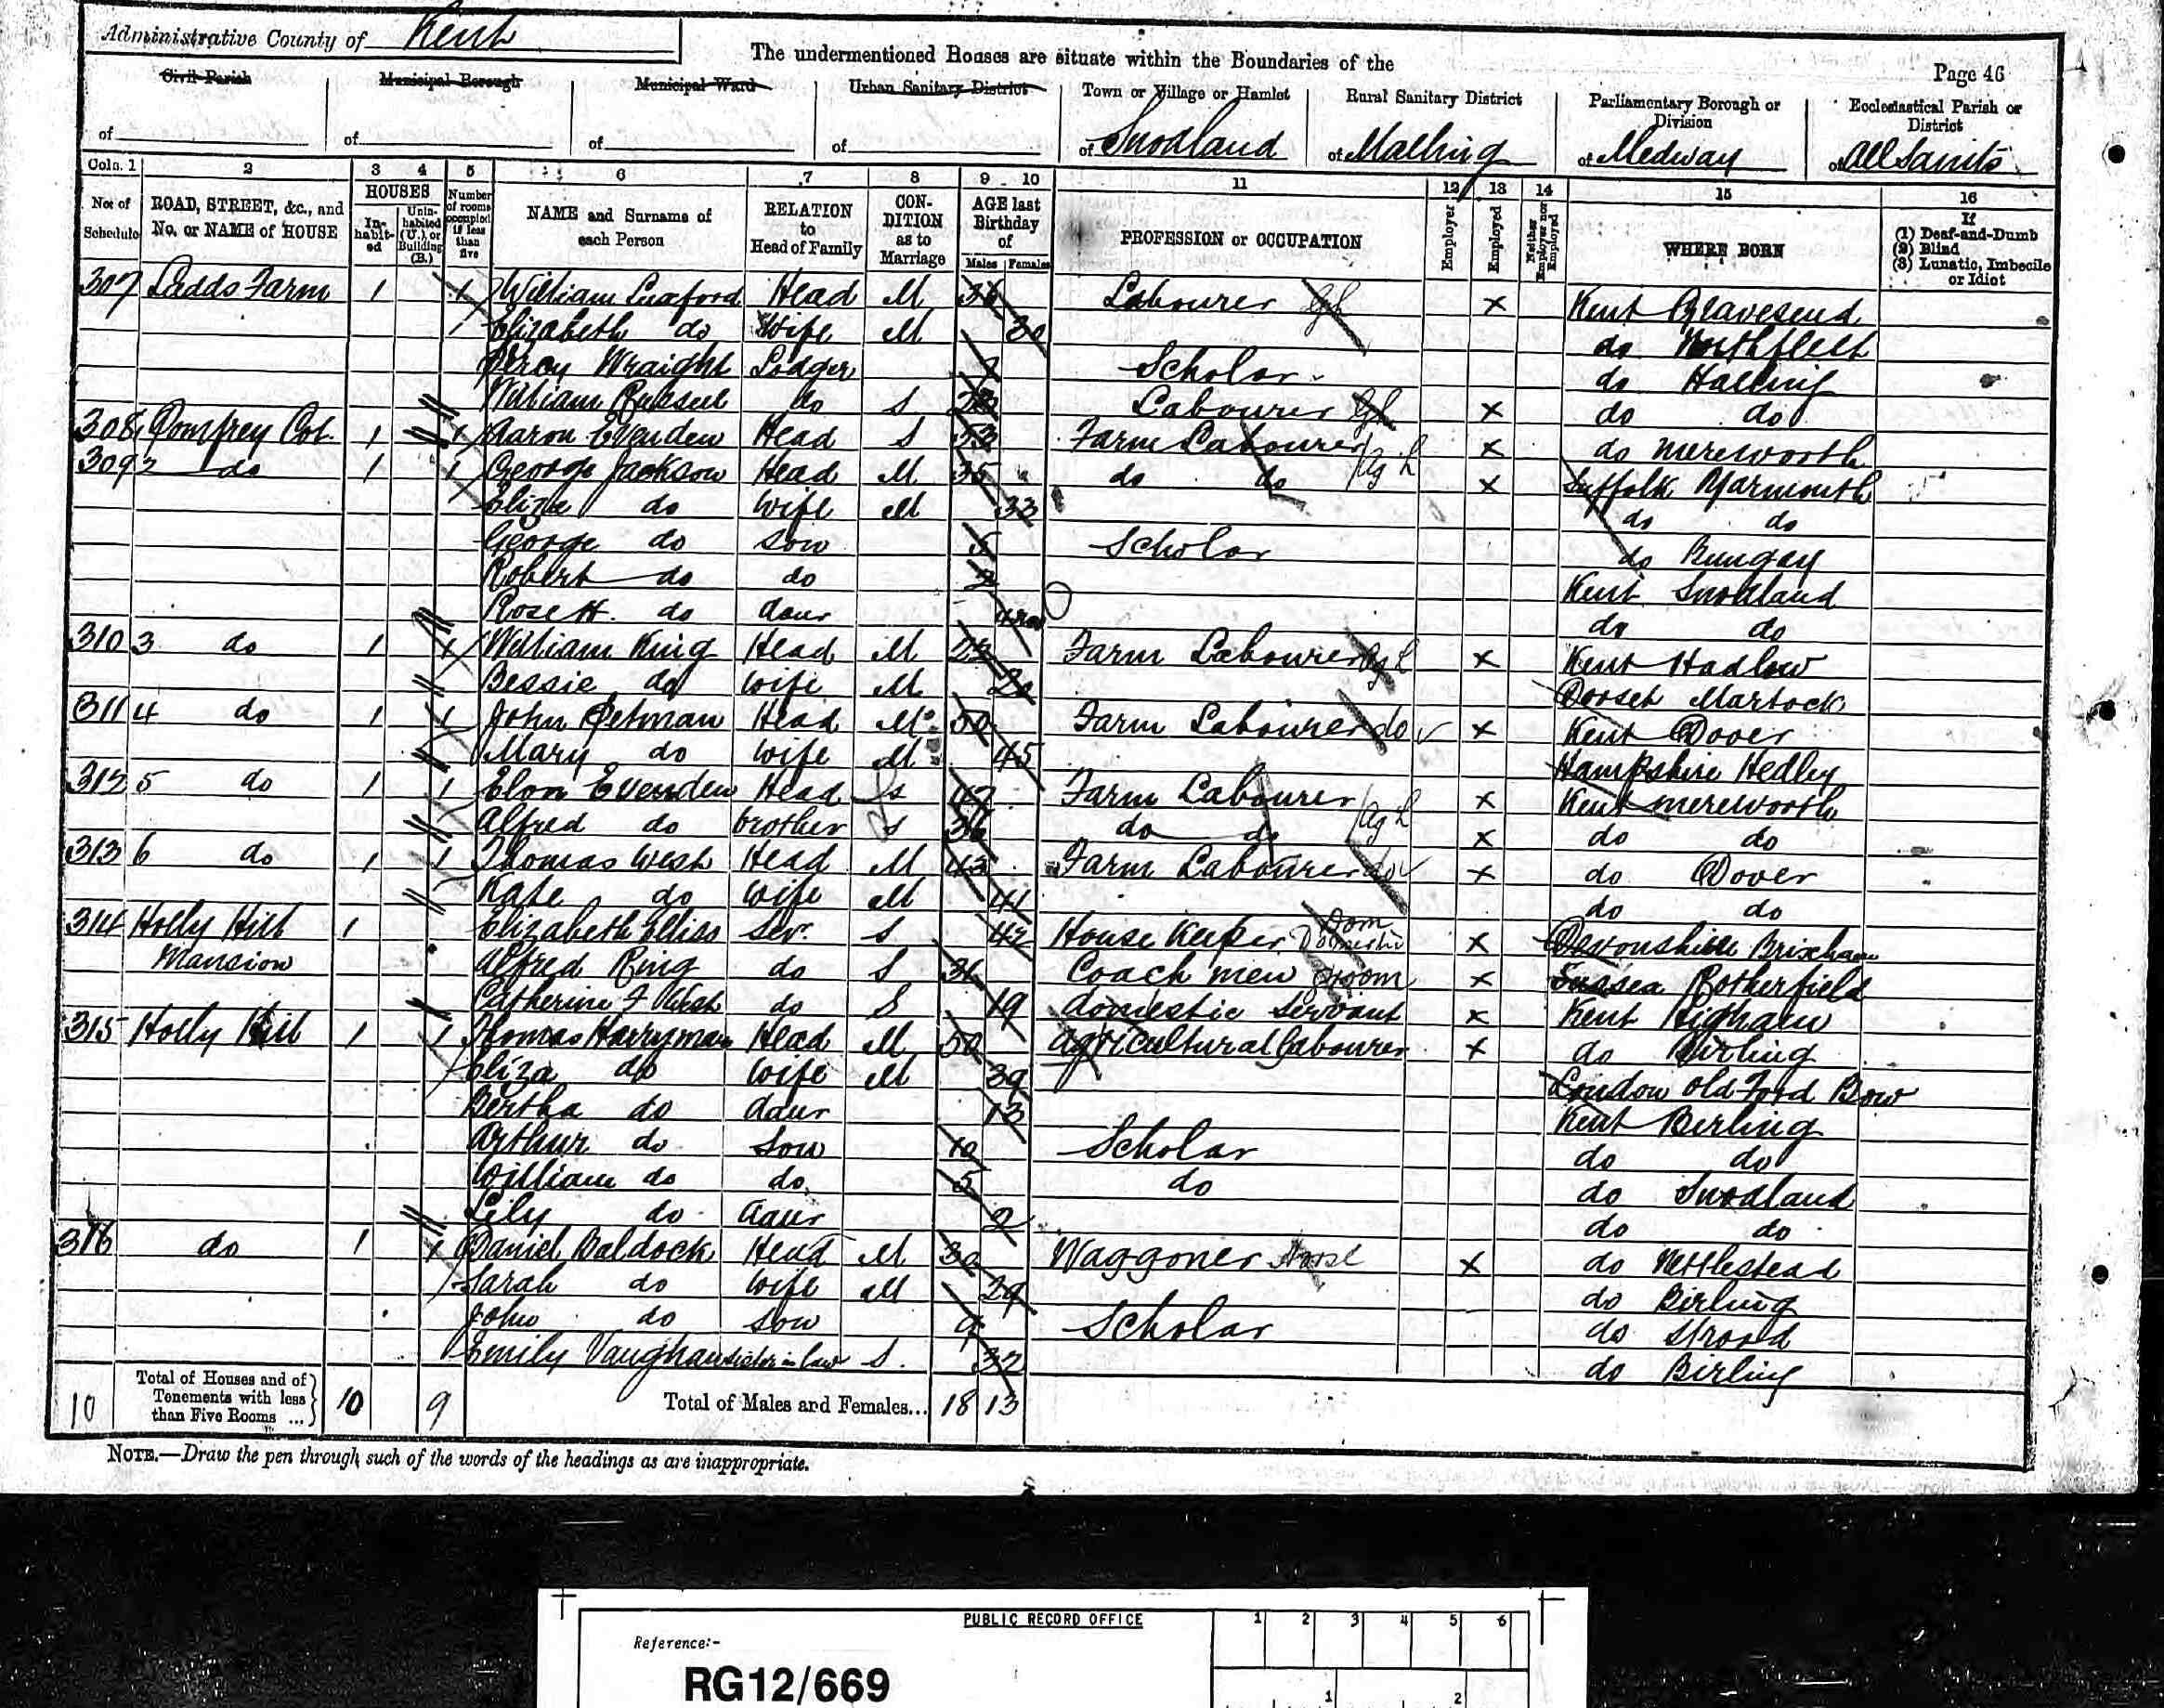 Administrative County of Kent
The undermentioned Houses are situate within the Boundaries of the
Page 46
Civil Parish of
Municipal Borough of
Municipal Ward of
Urban Sanitary District of
Town or Village or Hamlet of Snodland
Rural Sanitary District of Malling
Parliamentary Borough or Division of Medway
Ecclesiastical Parish or District of All Saints
Cols. 1 2 3 4 5 6 7 8 9 10 11 12 13 14 15 16
No. of Schedule
ROAD, STREET, &c., and No. or NAME of HOUSE
HOUSES
Inhabited
Uninhabited (U.), or Building (B.)
Number of rooms occupied if less than five
NAME and Surname of each Person
RELATION to Head of Family
CONDITION as to Marriage
AGE last Birthday of
Males Females
PROFESSION or OCCUPATION
Employer
Employed
Neither Employer nor Employed
WHERE BORN
If (1) Deaf-and-Dumb (2) Blind (3) Lunatic, Imbecile or Idiot
307 Ladds Farm 1 William Luxford Head M 36 Labourer X Kent Gravesend
Elizabeth do Wife M 30 do Northfleet
Percy Wraight Lodger Scholar do Halling
William do S Labourer X do do
308 Pomfrey Cot. 1 Aaron Evenden Head S 53 Farm Labourer Ag L X do Mereworth
309 2 do 1 George Jackson Head M 35 do do Ag L X Suffolk Yarmouth
Eliza do Wife M 33 do do
George do Son 5 Scholar do Bungay
Robert do do 2 Kent Snodland
Rose H. do daur do do
310 3 do 1 William King Head M 22 Farm Labourer Ag L X Kent Hadlow
Bessie do wife M 20 Dorset Martock
311 4 do 1 John Petman Head M 50 Farm Labourer do X Kent Dover
Mary do wife M 45 Hampshire Hedley
312 5 do 1 Elon Evenden Head S 42 Farm Labourer Ag L X Kent Mereworth
Alfred do brother S do do X do do
313 6 do 1 Thomas West Head M 43 Farm Labourer do X do Dover
Kate do wife M 41 do do
314 Holly Hill 1 Elizabeth Elliss Ser. S 42 House Keeper Domestic Dom X Devonshire Brixham
Mansion Alfred Ring do S 36 Coach men Groom X Sussex Rotherfield
Catherine F West do S 19 domestic Servant X Kent Higham
315 Holly Hill 1 Thomas Harryman Head M 50 Agricultural Labourer X do Birling
Eliza do wife M 39 London Old Ford Bow
Bertha do daur 13 Kent Birling
Arthur do Son 10 Scholar do do
William do do 5 do do Snodland
Lily do daur 2 do do
316 do 1 Daniel Baldock Head M 30 Waggoner Horse X do Nettlestead
Sarah do wife M 29 do Birling
John do Son 9 Scholar do Strood
Emily Vaughan sister in law S. 32 do Birling
10 Total of Houses and of Tenements with less than Five Rooms ... 10 9 Total of Males and Females... 18 13
NOTE.—Draw the pen through such of the words of the headings as are inappropriate.
PUBLIC RECORD OFFICE 1 2 3 4 5 6
Reference:-
RG12/669
1 2